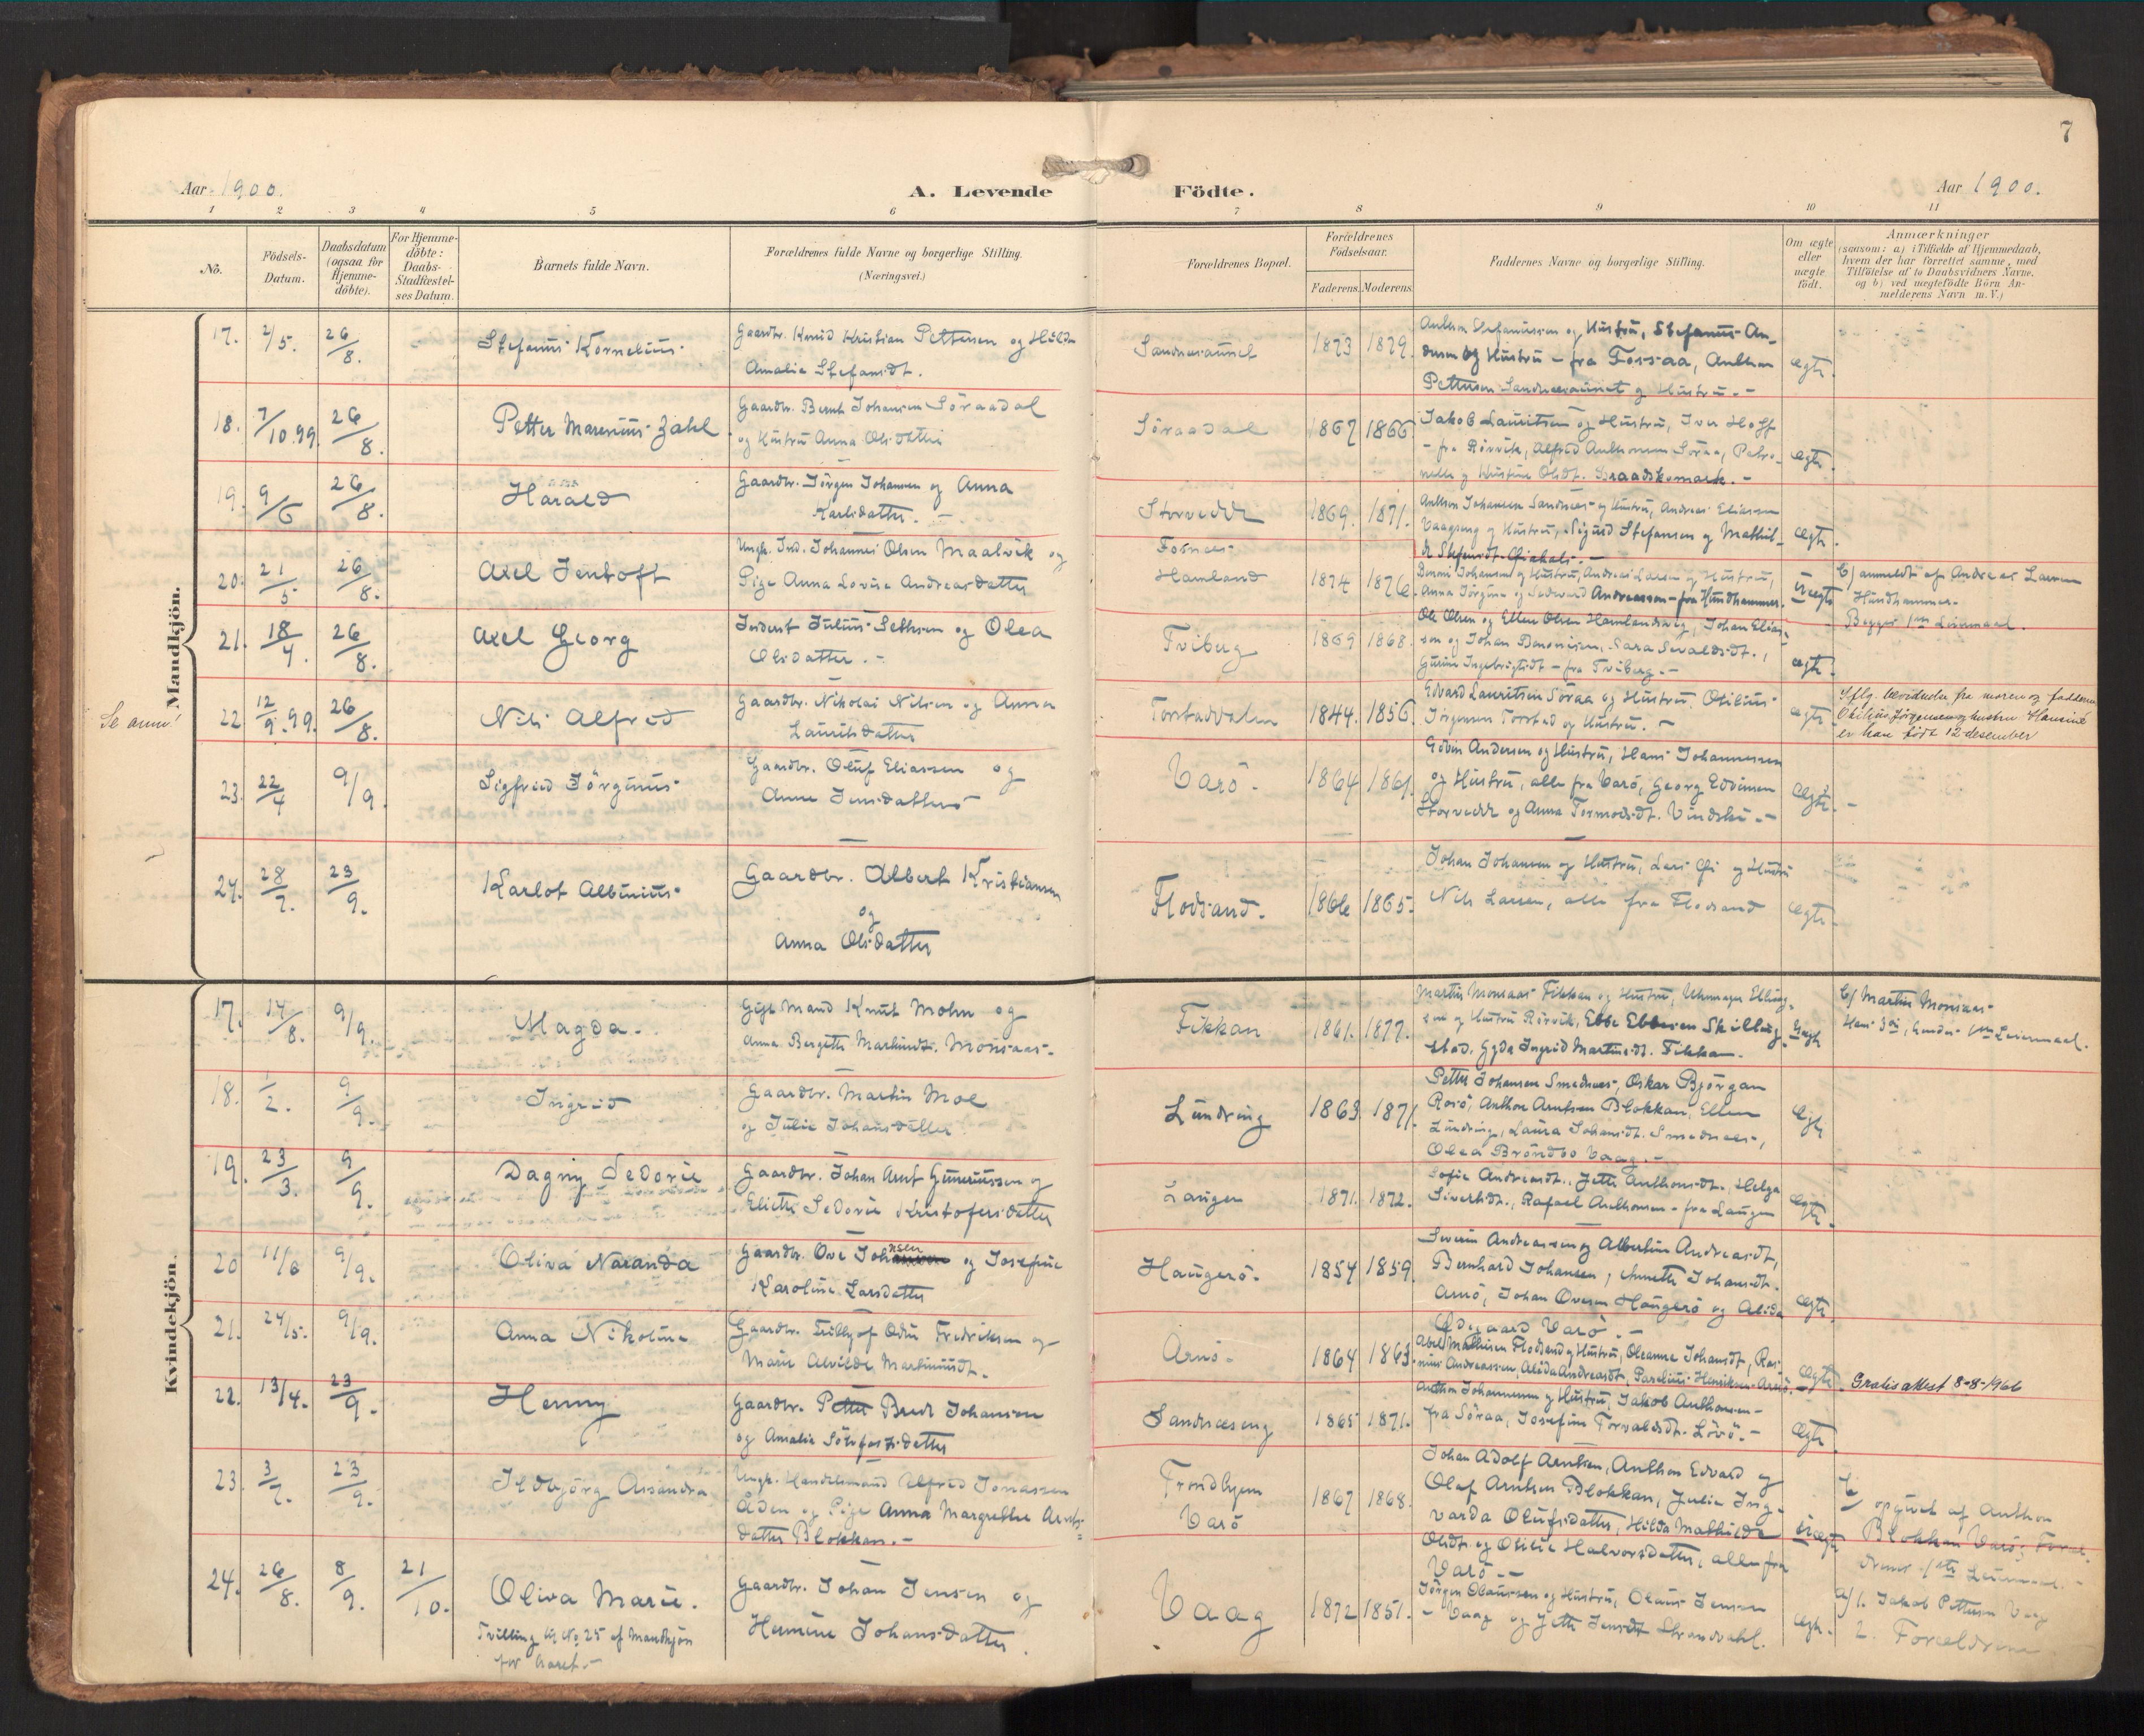 7
Aar 1900.
A. Levende
Födte.
Aar 1900.
1 2 3 4 5 6 7 8 9 10 11
No.
Födsels-
Datum.
Daabsdatum
(ogsaa for
Hjemme-
döbte).
For Hjemme-
döbte:
Daabs-
Stadfæstel-
ses Datum.
Barnets fulde Navn.
Forældrenes fulde Navne og borgerlige Stilling.
(Næringsvei.)
Forældrenes Bopæl.
Forældrenes
Födselsaar.
Faderens. Moderens.
Faddernes Navne og borgerlige Stilling.
Om ægte
eller
uægte
födt.
Anmærkninger
(saasom: a) i Tilfælde af Hjemmedaab,
hvem der har forrettet samme, med
Tilföielse af to Daabsvidners Navne.
og b) ved uægtefödte Börn An-
melderens Navn m. V.)
Mandkjön.
17. 2/5. 26/8. Stefanus Kornelius
Gaardbr. Knud Kristian Pettersen og Hilda
Amalie Stefansdt.
Sandnesaunet 1873 1879.
Anthon Stefanussen og Hustru, Stefanus An-
dersen og Hustru - fra Fossaa, Anthon
Pettersen Sandnesaunet og Hustru. -
ægte.
18. 7/10.99. 26/8. Petter Marenius Zahl
Gaardbr. Bernt Johansen Söraadal
og Hustru Anna Olsdatter
Söraadal 1867 1866
Jakob Lauritsen og Hustru, Iver Hoff
- fra Rörvik, Alfred Anthonsen Söraa, Petro-
nelle og Kristine Olsdt. Graadskomark. -
ægte.
19. 9/6 26/8. Harald
Gaardbr. Jörgen Johansen og Anna
Karlsdatter. -
Storvedde 1869. 1871.
Anthon Johansen Sandnes og Hustru, Andreas Eliassen
Vaagseng og Hustru, Sigurd Stefansen og Mathil-
de Stefansdt.
ægte.
20. 21/5 26/8. Axel Jentoft
Ungk. Ind. Johannes Olsen Maalvik og
Pige Anna Lovise Andreasdatter
Fosnes
Hamland 1874 1876.
Benoni Johansen og Hustru, Andreas Larsen og Hustru,
Anna Jörgine og Sedward Andreassen - fra Hundhammer.
Uægte
b/ anmeldt af Andreas Larsen
Hundhammer.
Begges 1ste Leiermaal.
21. 18/4. 26/8. Axel Georg
Inderst Julius Sethsen og Olea
Olsdatter. -
Tviberg 1869 1868.
Ole Olsen og Ellen Olsen Hamlandsvig, Johan Elias-
sen og Johan Benonisen, Sara Sevaldsdt.,
Gurine Ingebrigtsdt - fra Tviberg. -
ægte.
Se anm!
22 12/9.99. 26/8. Nils Alfred
Gaardbr. Nikolai Nilsen og Anna
Lauritsdatter
Torstaddalen 1844. 1856.
Edvard Lauritsen Söraa og Hustru, Otilius
Jörgensen Torstad og Hustru. -
ægte.
Iflg. bevidnelse fra moren og faddern
Otilius Jörgensen og hustru Hansine
er han född 12 desember
23. 22/4 9/9. Sigfred Jörginus
Gaardbr. Oluf Eliassen og
Anne Jensdatter
Varö - 1864 1861.
Edvin Andersen og Hustru, Hans Johannessen
og Hustru, alle fra Varö, Georg Edvinsen
Storvedde og Anna Tormodsdt. -
Ægte. -
24. 28/7. 23/9. Karlot Albinius
Gaardbr. Albert Kristiansen
og
Anna Olsdatter
Flodsand. 1866 1865.
Johan Johansen og Hustru, Lars og Hustru
Nils Larsen, alle fra Flodsand
ægte.
Kvindekjön.
17. 14/8. 9/9. Magda.
Gift Mand Knut Mohn og
Anna Bergitte Martinusdt. Monsaas.
Fikkan 1861. 1877.
Martin Monsaas Fikkan og Hustru, Elling-
sen og Hustru Rörvik, Ebbe Ebbesen Skilling-
stad, Gyda Ingrid Martinsdt. Fikkan.
Uægte
b/ Martin Monsaas
Hans 3die, hendes 1ste Leiermaal.
18. 1/2. 9/9. Ingrid
Gaardbr. Martin Moe
og Julie Johansdatter
Lundring 1863. 1871.
Petter Johansen Smednes, Oskar Bjørgan
Rosö, Anthon Arntsen Blokkan, Ellen
Lundring, Laura Johansdt. Smednes,
Olea Bröndbo Vaag. -
Ægte
19. 23/3. 9/9. Dagny Sedorie
Gaardbr. Johan Arnt Gunerussen og
Eliette Sedorie Kristofersdatter
Laugen 1871. 1872.
Sofie Andreasdt., Jette Anthonsdt., Helga
Sivertsdt., Rafael Anthonsen - fra Laugen
Ægte.
20 11/6 9/9. Oliva Naranda
Gaardbr. Ove Johansen og Josefine
Karoline Larsdatter
Haugerö. 1854 1859.
Severin Andreassen og Albertine Andreasdt,
Bernhard Johansen, Annette Johansdt.
Arnö, Johan Ovesen Haugerö og Alida
Ödegaard Varö. -
Ægte.
21. 24/5. 9/9. Anna Nikoline
Gaardbr. Fridtjof Odin Fredriksen og
Marie Alvilde Martinusdt.
Arnö - 1864 1863.
Axel Mathisen Flodsand og Hustru, Oleanne Johansdt, Ras-
mus Andreassen, Alida Andreasdt, Parelius Henriksen Arnö.
Ægte.
Gratisattest 8-8-1966
22. 13/4. 23/9. Henny
Gaardbr. Petter Bred Johansen
og Amalie Sölvfestsdatter
Sandnæseng 1865 1871.
Anthon Johannessen og Hustru, Jakob Anthonsen -
fra Söraa, Josefine Torvaldsdt. Lövö. -
Ægte.
23. 3/7. 23/9. Ildbjörg Assandra
Ungk. Handelsmand Alfred Jonassen
Eden og Pige Anna Margrethe Arnts-
datter Blokkan. -
Trondhjem
Varö 1867 1868.
Johan Adolf Arntsen, Anthon Edvard og
Olaf Arntsen Blokkan, Julie Ing-
varda Olufsdatter, Hilda Mathilde
Olsdt. og Otilie Halvorsdatter, alle fra
Varö. -
Uægte
b/ opgivet af Anthon
Blokkan Varö; Foræl-
drenes 1ste Leiermaal. -
24. 26/8. 8/9. 21/10. Oliva Marie.
Tvilling til No 25 af Mandkjön
for Aaret. -
Gaardbr. Johan Jensen og
Hermine Johansdatter.
Vaag 1872 1851.
Jörgen Olaussen og Hustru, Olaus Jensen
- Vaag og Jette Jensdt Strandvahl.
Ægte.
a/ 1. Jakob Pettersen Vaag
2. Forældrene